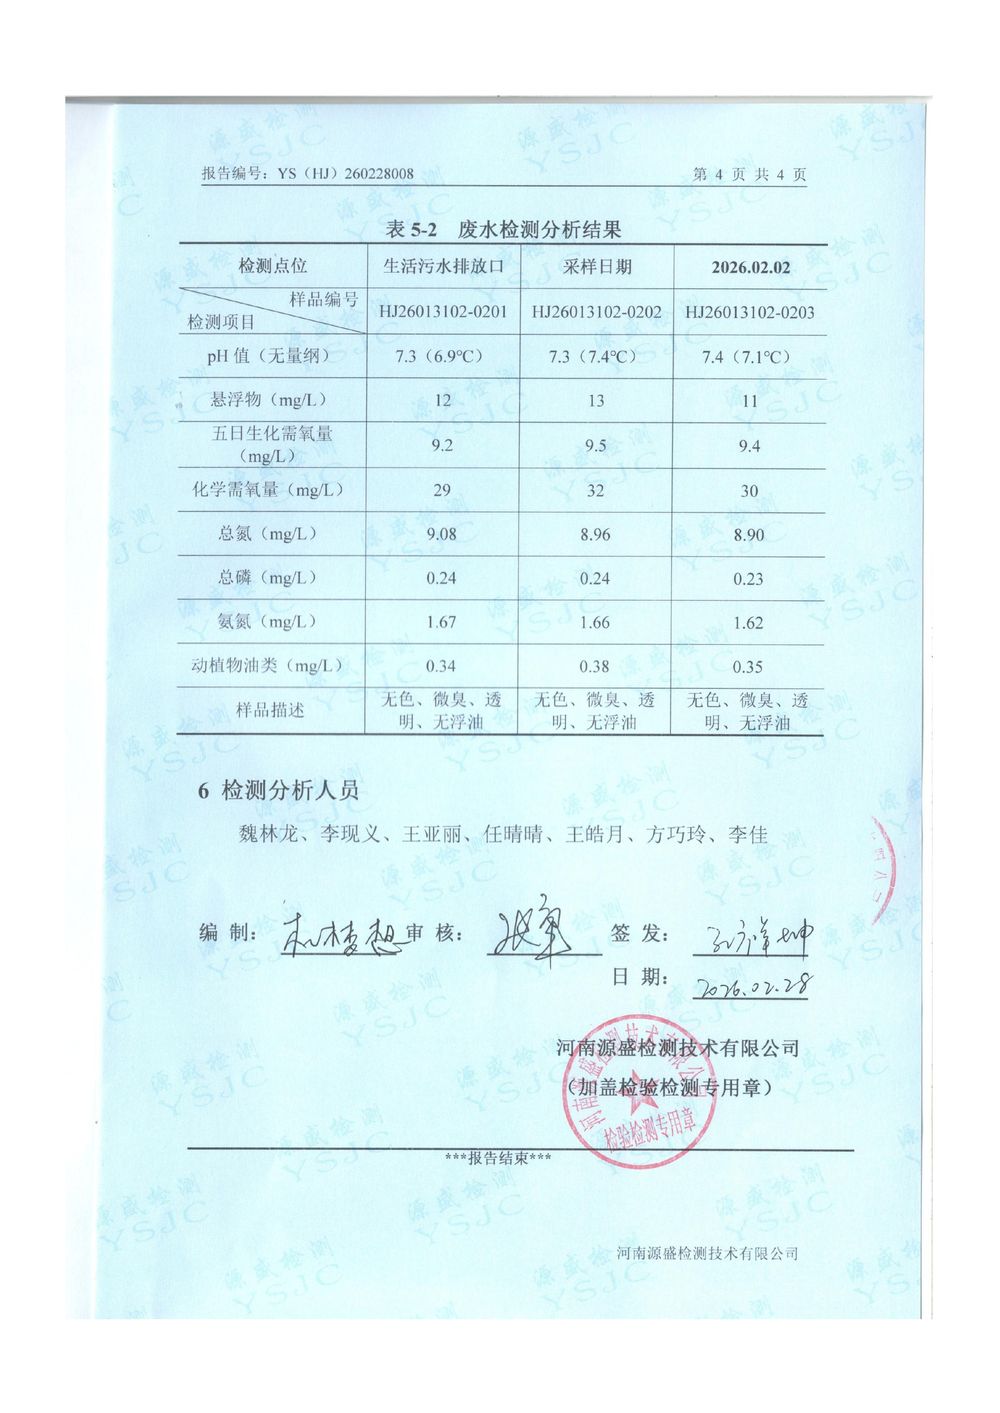 报告编号：YS（HJ）260228008 第 4 页 共 4 页
表 5-2 废水检测分析结果
检测点位 生活污水排放口 采样日期 2026.02.02
样品编号
检测项目 HJ26013102-0201 HJ26013102-0202 HJ26013102-0203
pH 值（无量纲） 7.3（6.9℃） 7.3（7.4℃） 7.4（7.1℃）
悬浮物（mg/L） 12 13 11
五日生化需氧量
（mg/L） 9.2 9.5 9.4
化学需氧量（mg/L） 29 32 30
总氮（mg/L） 9.08 8.96 8.90
总磷（mg/L） 0.24 0.24 0.23
氨氮（mg/L） 1.67 1.66 1.62
动植物油类（mg/L） 0.34 0.38 0.35
样品描述 无色、微臭、透 无色、微臭、透 无色、微臭、透
明、无浮油 明、无浮油 明、无浮油
6 检测分析人员
魏林龙、李现义、王亚丽、任晴晴、王皓月、方巧玲、李佳
编 制： 审 核： 签 发：
日 期： 2026.02.28
河南源盛检测技术有限公司
（加盖检验检测专用章）
河南源盛检测技术有限公司
检验检测专用章
***报告结束***
河南源盛检测技术有限公司
源盛检测
YSJC